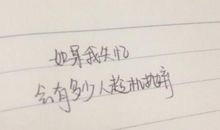 如果我失忆
会有多少人趁机撇弃